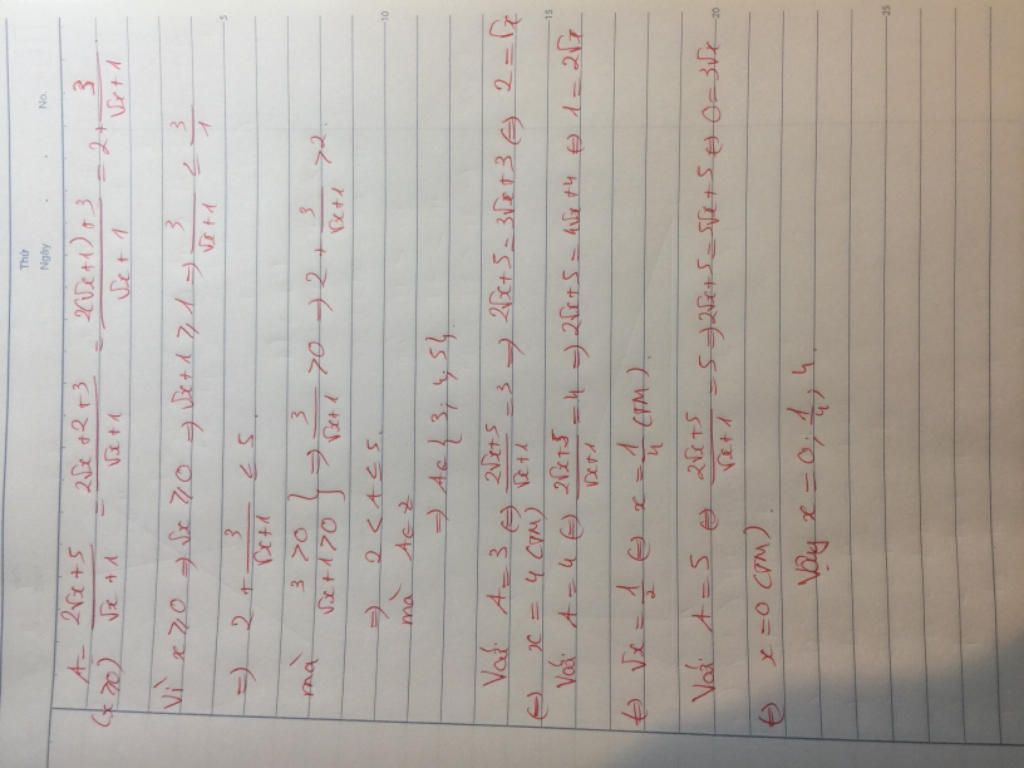 Thứ
Ngày No.
A = (2√x+5)/(√x+1) = (2√x+2+3)/(√x+1) = (2(√x+1)+3)/(√x+1) = 2 + 3/(√x+1)
(x≥0)
Vì x≥0 ⇒ √x ≥ 0 ⇒ √x+1 ≥ 1 ⇒ 3/(√x+1) ≤ 3/1
⇒ 2 + 3/(√x+1) ≤ 5
mà 3 > 0
√x+1 > 0 } ⇒ 3/(√x+1) > 0 ⇒ 2 + 3/(√x+1) > 2
⇒ 2 < A ≤ 5
mà A ∈ Z
⇒ A ∈ { 3; 4; 5 }
Với A = 3 ⇔ (2√x+5)/(√x+1) = 3 ⇒ 2√x+5 = 3√x+3 ⇔ 2 = √x
⇔ x = 4 (TM)
Với A = 4 ⇔ (2√x+5)/(√x+1) = 4 ⇒ 2√x+5 = 4√x+4 ⇔ 1 = 2√x
⇔ √x = 1/2 ⇔ x = 1/4 (TM)
Với A = 5 ⇔ (2√x+5)/(√x+1) = 5 ⇒ 2√x+5 = 5√x+5 ⇔ 0 = 3√x
⇔ x = 0 (TM)
Vậy x = 0; 1/4; 4
5
10
15
20
25